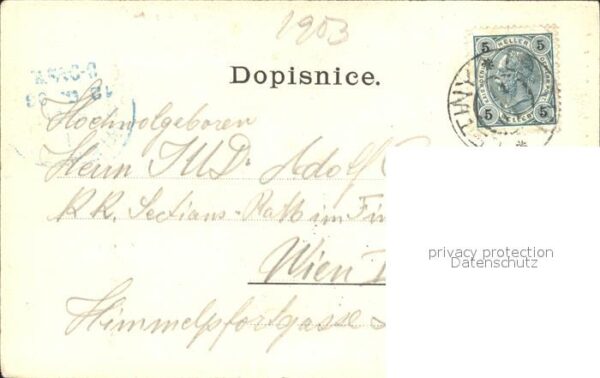 1903
Dopisnice.
5 HELLER 5
5 HELLER 5
TINY
Hochwolgeboren
Herrn JUD. Adolf
K.K. Sections-Rath im Fin
Wien I
Himmelpfortgasse
privacy protection
Datenschutz